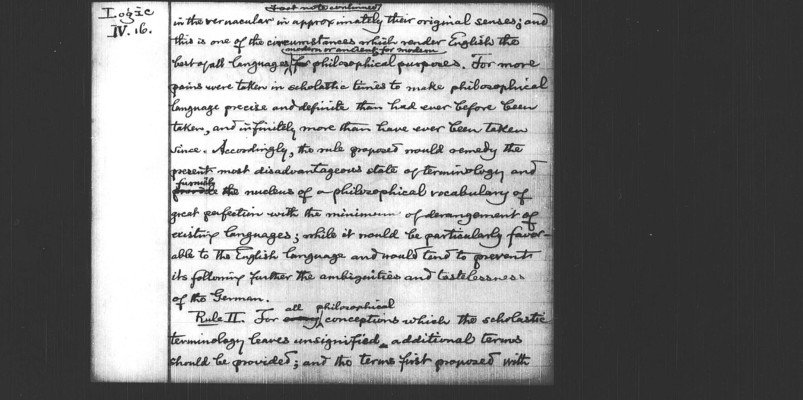 Logic
IV. 16.
Foot note continued
in the vernacular in approximately their original senses; and
this is one of the circumstances which render English the
modern or ancient, for modern
best of all languages, for philosophical purposes. Far more
pains were taken in scholastic times to make philosophical
language precise and definite than had ever before been
taken, and infinitely more than have ever been taken
since. Accordingly, the rule proposed would remedy the
present most disadvantageous state of terminology and
furnish
provide the nucleus of a philosophical vocabulary of
great perfection with the minimum of derangement of
existing languages; while it would be particularly favor-
able to the English language and would tend to prevent
its following further the ambiguities and tastelessness
of the German.
all philosophical
Rule II. For conceptions which the scholastic
terminology leaves unsignified, additional terms
should be provided; and the terms first proposed with